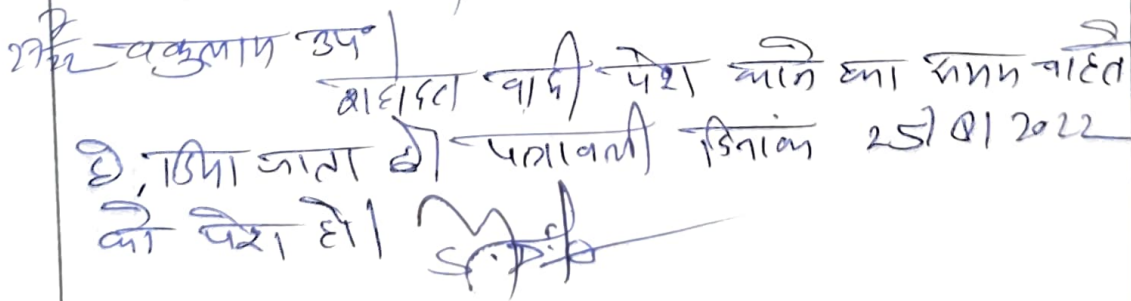 वकुलाय उप०।
शहादत वादी पेश करने का समय चाहते
है, दिया जाता है। पत्रावली दिनांक 25/8/2022
को पेश हो।